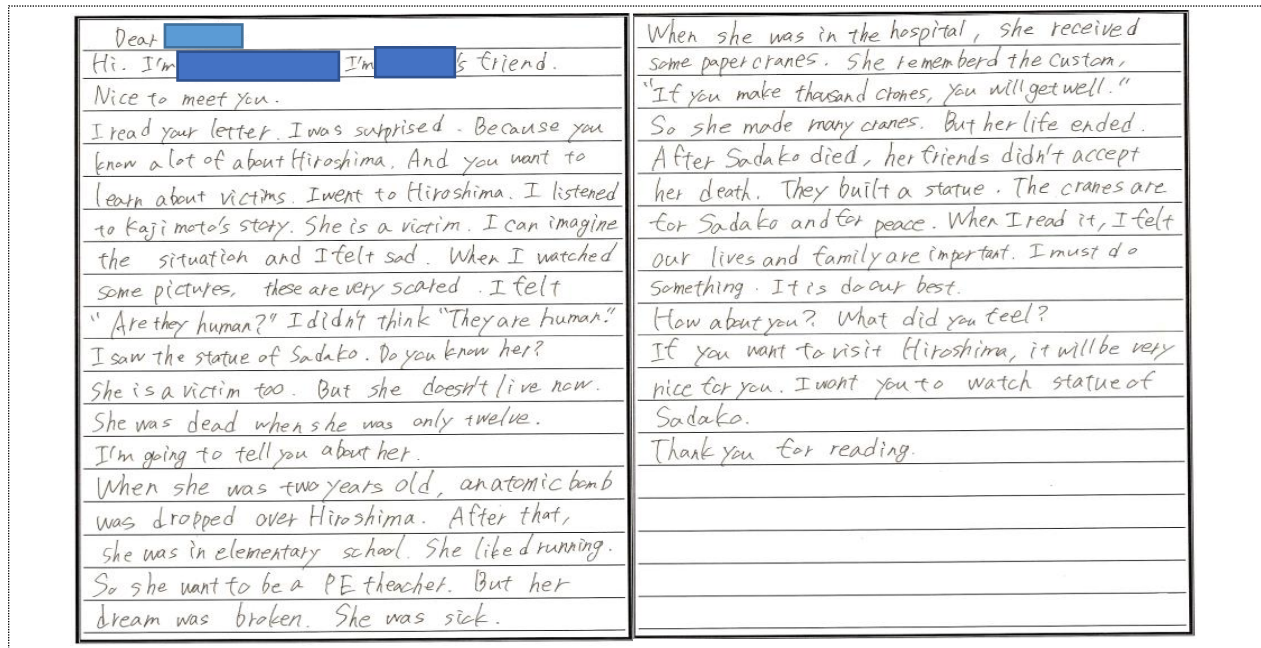 Dear
Hi. I'm I'm 's friend.
Nice to meet you.
I read your letter. I was surprised. Because you
know a lot of about Hiroshima. And you want to
learn about victims. I went to Hiroshima. I listened
to Kajimoto's story. She is a victim. I can imagine
the situation and I felt sad. When I watched
some pictures, these are very scared. I felt
"Are they human?" I didn't think "They are human."
I saw the statue of Sadako. Do you know her?
She is a victim too. But she doesn't live now.
She was dead when she was only twelve.
I'm going to tell you about her.
When she was two years old, an atomic bomb
was dropped over Hiroshima. After that,
she was in elementary school. She liked running.
So she want to be a PE theacher. But her
dream was broken. She was sick.
When she was in the hospital, she received
some paper cranes. She rememberd the custom,
"If you make thousand cranes, you will get well."
So she made many cranes. But her life ended.
After Sadako died, her friends didn't accept
her death. They built a statue. The cranes are
for Sadako and for peace. When I read it, I felt
our lives and family are important. I must do
something. It is do our best.
How about you? What did you feel?
If you want to visit Hiroshima, it will be very
nice for you. I want you to watch statue of
Sadako.
Thank you for reading.